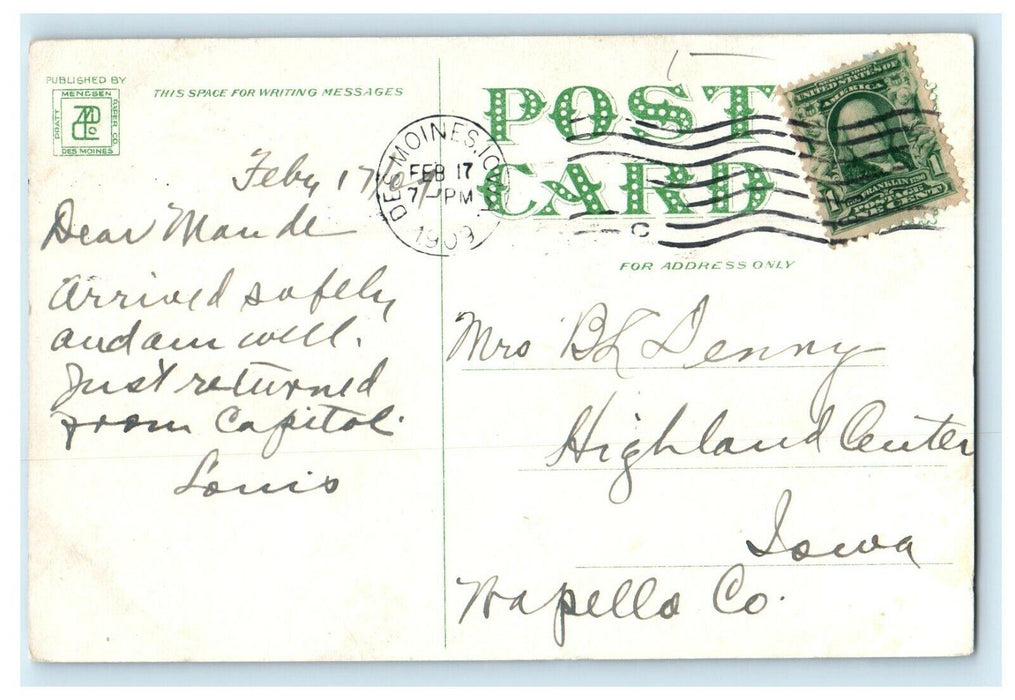 PUBLISHED BY
MENGSEN
PRATT
PAPER CO.
DES MOINES
THIS SPACE FOR WRITING MESSAGES
POST
CARD
FOR ADDRESS ONLY
DES MOINES, IOWA
FEB 17
7-PM
1909
UNITED STATES OF
AMERICA
FRANKLIN
POSTAGE
1
Feby 17
Dear Maude
Arrived safely
and am well.
Just returned
from Capitol.
Louis
Mrs BL Denny
Highland Center
Iowa
Wapello Co.